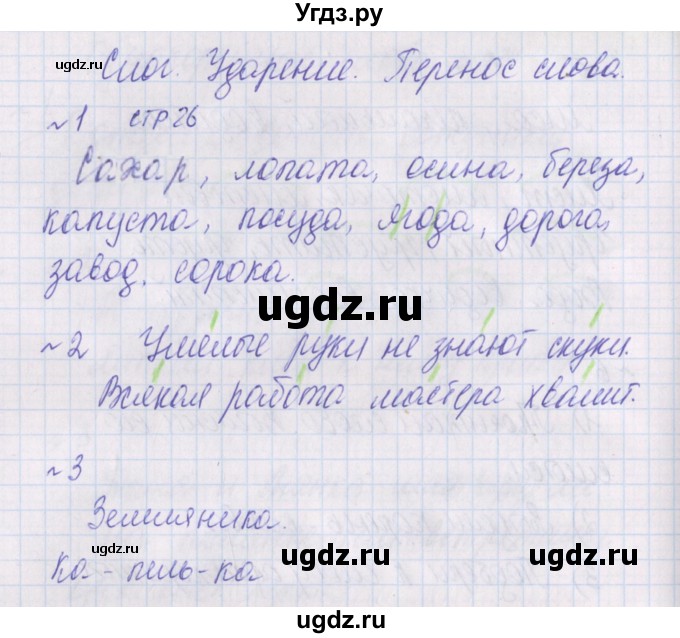 Угдз.ру
ugdz.ru
Слог. Ударение. Перенос слова.
ugdz.ru
№1 стр 26
Сахар, лопата, осина, береза,
капуста, посуда, ягода, дорога,
завод, сорока.
ugdz.ru
№2 Умелые руки не знают скуки.
Всякая работа мастера хвалит.
№3
Земляника.
ugdz.ru ugdz.ru ugdz.ru
Ка - пель - ка
ugdz.ru ugdz.ru ugdz.ru ugdz.ru